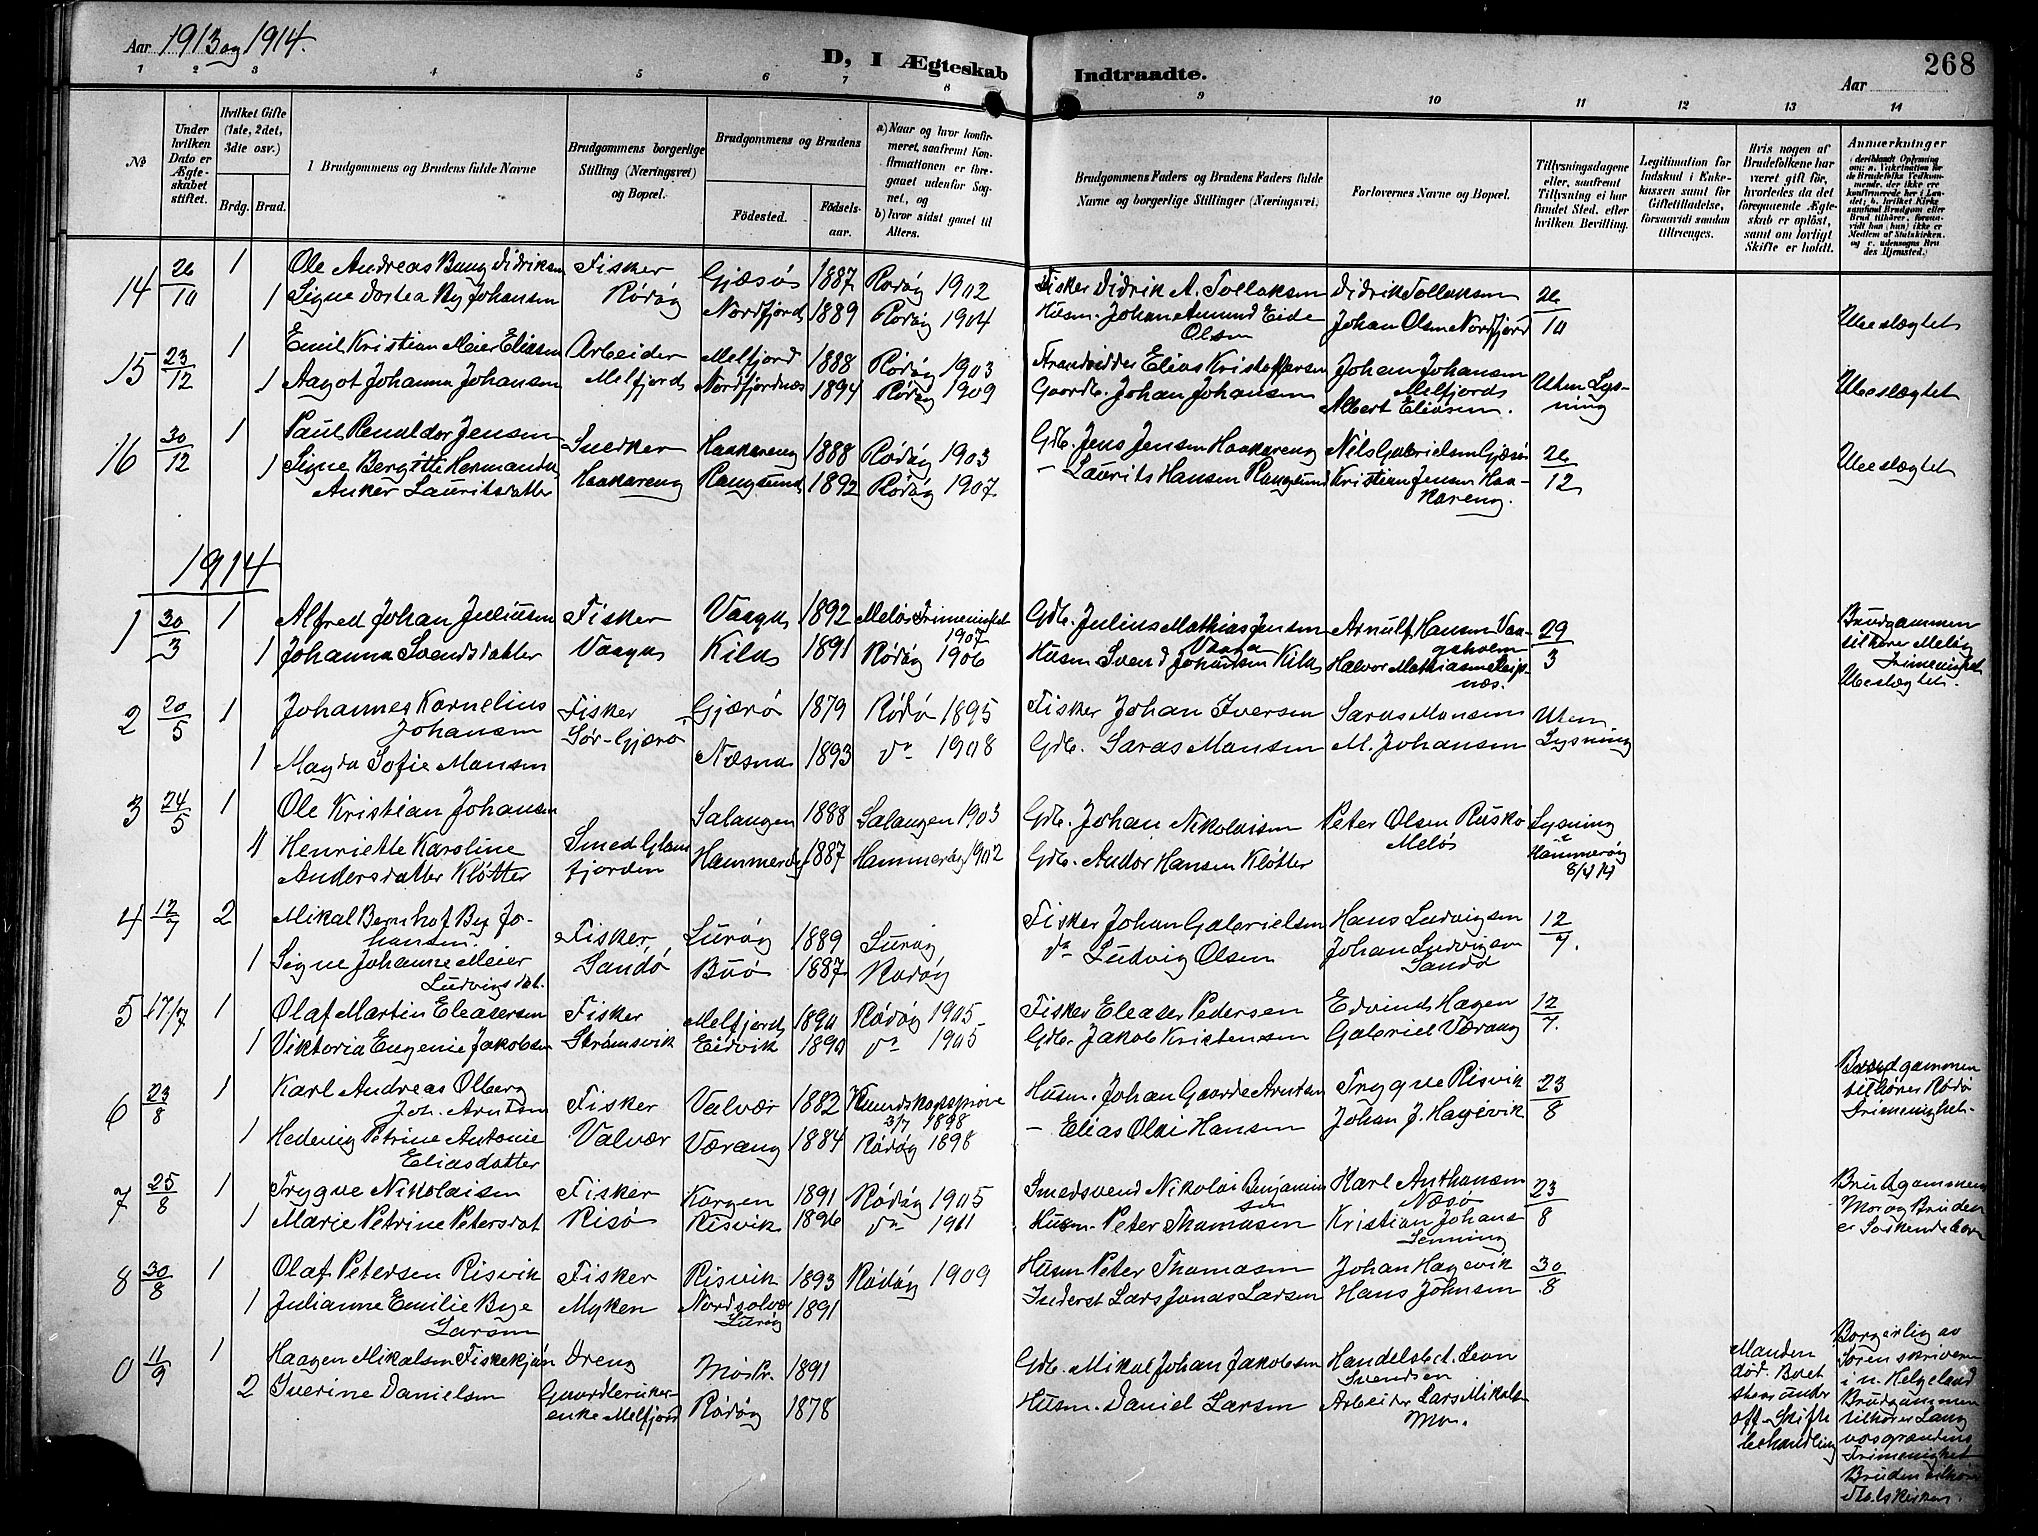 Aar 1913 og 1914.
D, I Ægteskab Indtraadte.
Aar
268
1 2 3 4 5 6 7 8 9 10 11 12 13 14
No
Under hvilken Dato er Ægteskabet stiftet.
Hvilket Gifte (1ste, 2det, 3die osv.)
Brdg. Brud.
1 Brudgommens og Brudens fulde Navne
Brudgommens borgerlige Stilling (Næringsvei) og Bopæl.
Brudgommens og Brudens
Fødested.
Fødselsaar.
a) Naar og hvor konfirmeret, saafremt Konfirmationen er foregaaet udenfor Sognet, og
b) hvor sidst gaaet til Alters.
Brudgommens Faders og Brudens Faders fulde Navne og borgerlige Stillinger (Næringsvei)
Forlovernes Navne og Bopæl.
Tillysningsdagene eller, saafremt Tillysning ei har fundet Sted, efter hvilken Bevilling.
Legitimation for Indskud i Enkekassen samt for Giftetilladelse, forsaavidt saadan tiltrænges.
Hvis nogen af Brudefolkene har været gift før, hvorledes da det foregaaende Ægteskab er opløst, samt om lovligt Skifte er holdt.
Anmærkninger
14 26/10 1 Ole Andreas Bang Didriksen Fisker Gjæsø 1887 Rødøy 1902 Fisker Didrik A. Tollaksen Didrik Tollaksen 26/10
1 Signe Dortea By Johansen Rødøy Nordfjord 1889 Rødøy 1904 Husm. Johan Amund Eide Olsen Johan Olsen Nordfjord Ubeslægtet
15 23/12 1 Emil Kristian Meier Eliasen Arbeider Melfjord 1888 Rødøy 1903 Strandsidder Elias Kristoffersen Johan Johansen Melfjord Uten Lysning
1 Aagot Johanna Johansen Melfjord Nordfjordnes 1894 Rødøy 1909 Gaardb. Johan Johansen Albert Eliasen. Ubeslægtet
16 30/12 1 Paul Renaldor Jensen Snedker Haakareng 1888 Rødøy 1903 Gdb. Jens Jensen Haakareng Nils Gabrielsen Gjæsø 26/12
1 Signe Bergitte Hermanda Anker Lauritsdatter Haakareng Rangsund 1892 Rødøy 1907 - Laurits Hansen Rangsund Kristian Jensen Haakareng. Ubeslægtet
1914
1 30/3 1 Alfred Johan Juliusen Fisker Vaaga 1892 Meløy Frimenighet 1907 Gdb. Julius Mathias Jensen Vaaga Arnulf Hansen Vaagsholm 29/3 Brudgommen tilhører Meløy Frimenighet
1 Johanna Svendsdatter Vaaga Kila 1891 Rødøy 1906 Husm Svend Johansen Kila Halvor Mathiasen Ubeslægtet.
2 20/5 1 Johannes Kornelius Johansen Fisker Sør-Gjærø Gjærø 1879 Rødø 1895 Fisker Johan Iversen Saras Monsen Uten Lysning
1 Magda Sofie Monsen Næsna 1893 do 1908 Gdb. Saras Monsen M. Johansen
3 24/5 1 Ole Kristian Johansen Salangen 1888 Salangen 1903 Gdb. Johan Nikolaisen Peter Olsen Ruskø Meløy Lysning Hammerøy 8/4 14
1 Henriette Karoline Andersdatter Kløtter Smed Glomfjorden Hammerøy 1887 Hammerøy 1902 Gdb. Andor Hansen Kløtter
4 12/7 2 Mikal Bernhof By Johansen. Fisker Lurøy 1889 Lurøy Fisker Johan Gabrielsen Hans Ludvigsen 12/7.
1 Signe Johanne Meier Ludvigsdat. Sandø Buø 1887 Rødøy do Ludvig Olsen Johan Ludvigsen Sandø
5 17/7 1 Olaf Martin Eleasersen Fisker Melfjord 1890 Rødøy 1905 Fisker Eleaser Pedersen Edvind Hagen 12/7.
1 Viktoria Eugenie Jakobsen Strømsvik Eidvik 1890 do 1905 Gdbr. Jakob Kristensen Gabriel Værang
6 23/8 1 Karl Andreas Olberg Joh. Arntsen Fisker Valvær 1882 Kundskapsprøve 3/7 1898 Husm. Johan Gaarde Arntsen Trygve Risvik 23/8 Brudgommen tilhører Rødø Frimenighet.
1 Hedevig Petrine Antonie Eliasdatter Valvær Værang 1884 Rødøy 1898 - Elias Olai Hansen Johan J. Hagevik
7 25/8 1 Trygve Nikolaisen Fisker Korgen 1891 Rødøy 1905 Smedsvend Nikolai Benjaminsen Karl Anthonsen Næsø 23/8 Brudgommens Mor og Bruden er Søskendebørn
1 Marie Petrine Petersdat Risø Risvik 1896 do 1911 Husm. Peter Thomasen Kristian Johans Senning
8 30/8 1 Olaf Petersen Risvik Fisker Risvik 1893 Rødøy 1909 Husm Peter Thomasen Johan Hagevik 30/8
1 Julianne Emilie Bye Larsen Myken Nordsolvær Lurøy 1891 Inderst Lars Jonas Larsen Hans Johnsen
0 11/9 1 Haagen Mikalsen Fiskekjøn Dreng Mostr. 1891 Gdb. Mikal Johan Jakobsen Handelsbet. Leon Svendsen
2 Iverine Danielsen Gaardbrukerenke Melfjord Rødøy 1878 Husm. Daniel Larsen Arbeider Lars Mikals Mo.
Manden død. Boet staar under off. Skiftebehandling
Borgerlig av Sorenskriveren i n. Helgeland Brudgommen tilhører Langvasgrændens Frimenighet Bruden tilhører Statskirken.